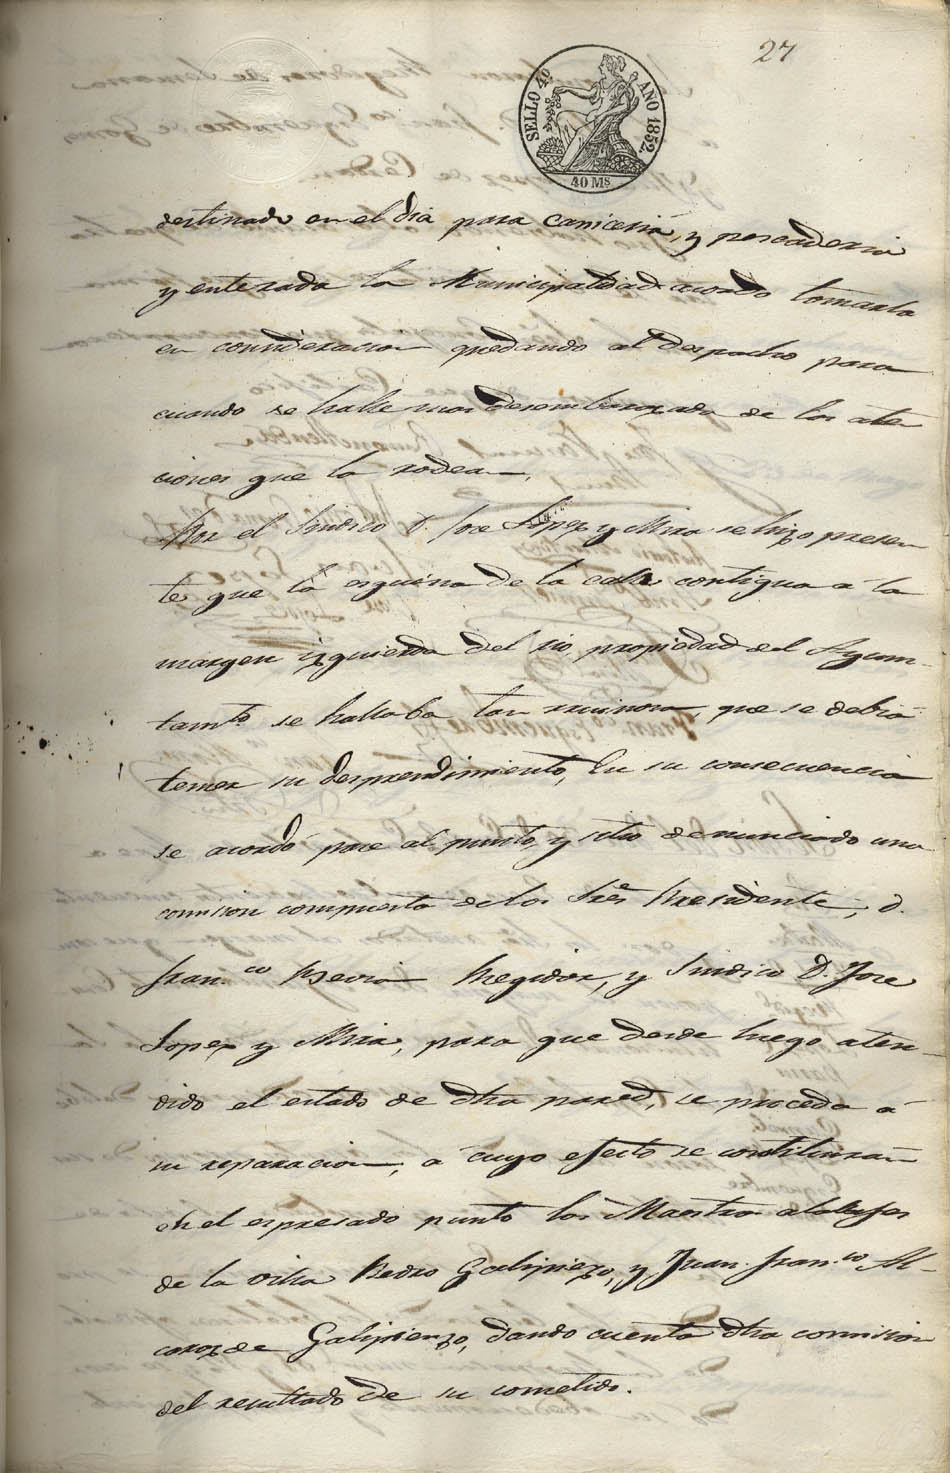 27
SELLO 4º AÑO 1852.
40 Ms
destinado en el dia para carniceria, y pescaderia
y enterada la Municipalidad acordó tomarla
en consideracion quedando al despacho para
cuando se halle mas desembarazada de las aten
ciones que la rodean.
Por el Sindico D. Jose Lopez y Mira se hizo presen
te que la esquina de la casa contigua á la
margen izquierda del rio, propiedad del Ayun-
tamto. se hallaba tan ruinosa que se debia
temer su desprendimiento, En su consecuencia
se acordó pase al punto y sitio denunciado una
comision compuesta de los Sres Presidente, D.
Franco Regidor, y Sindico D. Jose
Lopez y Mira, para que desde luego aten-
dido el estado de dha pared, se proceda á
su reparacion, á cuyo efecto se constituiran
en el espresado punto los Maestros alarifes
de la villa Pedro Galipienzo, y Juan Franco Al-
coroz de Galipienzo, dando cuenta dha comision
del resultado de su cometido.